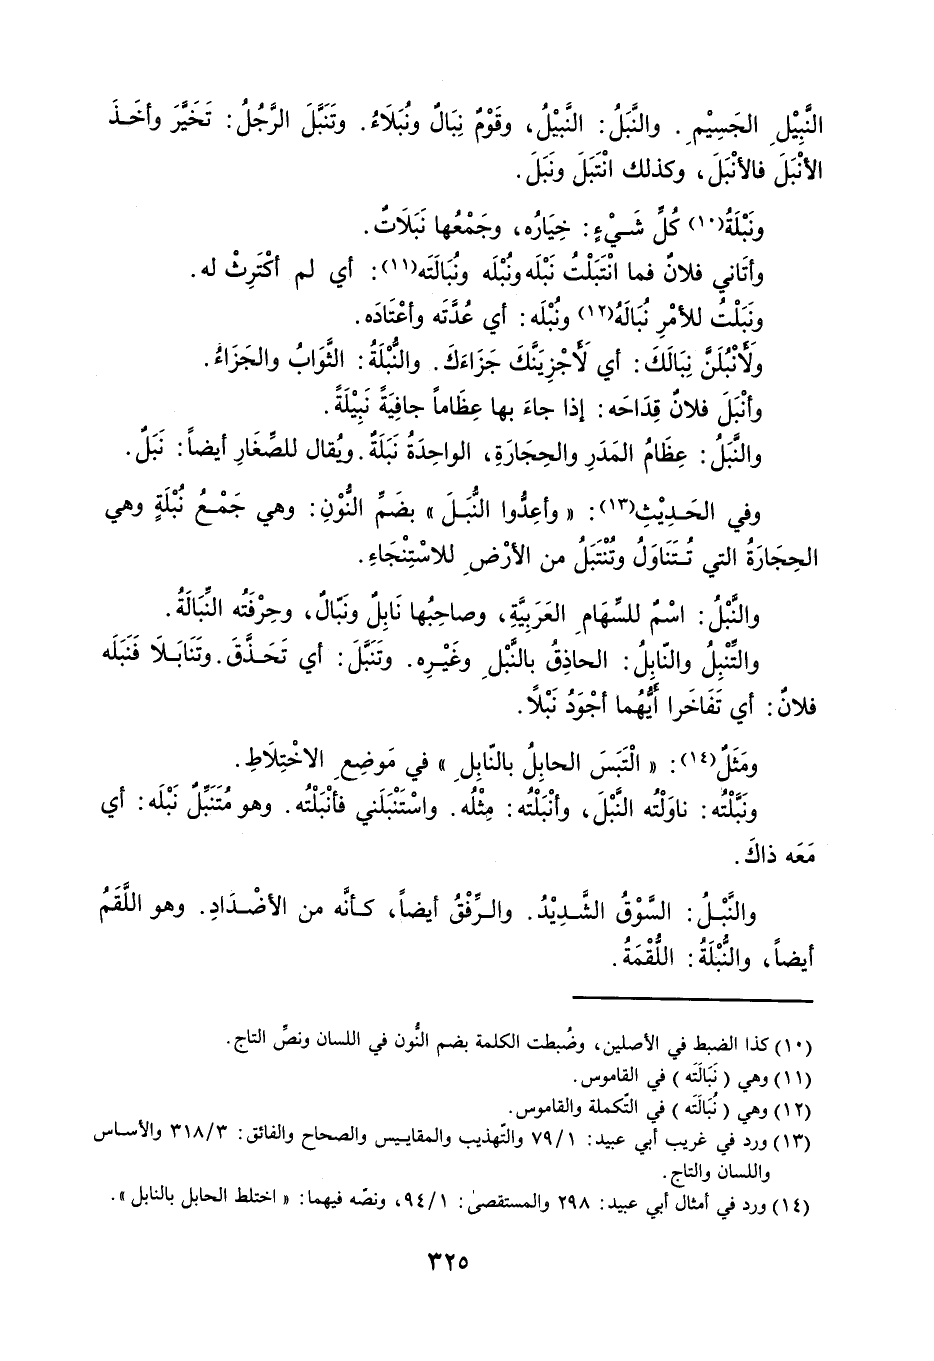 النَّبِيْلِ الجَسِيْمِ. والنَّبَلُ: النَّبِيْلُ، وقَوْمٌ نِبَالٌ ونُبَلَاءُ. وتَنَبَّلَ الرَّجُلُ: تَخَيَّرَ وأخَذَ
الأنْبَلَ فالأنْبَلَ، وكذلك انْتَبَلَ ونَبَلَ.
ونَبْلَةُ(١٠) كُلِّ شَيْءٍ: خِيَارُه، وجَمْعُها نَبَلَاتٌ.
وأتَاني فلانٌ فما انْتَبَلْتُ نَبْلَه ونُبْلَه ونُبَالَتَه(١١): أي لم أكْتَرِثْ له.
ونَبَلْتُ للأمْرِ نُبَالَهُ(١٢) ونُبْلَه: أي عُدَّتَه وأعْتَادَه.
ولَأَنْبُلَنَّ نِبَالَكَ: أي لَأَجْزِيَنَّكَ جَزَاءَكَ. والنُّبْلَةُ: الثَّوَابُ والجَزَاءُ.
وأنْبَلَ فلانٌ قِدَاحَه: إذا جاءَ بها عِظَاماً جافِيَةً نَبِيْلَةً.
والنَّبَلُ: عِظَامُ المَدَرِ والحِجَارَةِ، الواحِدَةُ نَبَلَةٌ. ويُقال للصِّغَارِ أيضاً: نَبَلٌ.
وفي الحَدِيْثِ(١٣): « وأعِدُّوا النُّبَلَ » بضَمِّ النُّوْنِ: وهي جَمْعُ نُبْلَةٍ وهي
الحِجَارَةُ التي تُتَنَاوَلُ وتُنْتَبَلُ من الأرْضِ للاسْتِنْجَاءِ.
والنَّبْلُ: اسْمٌ للسِّهَامِ العَرَبِيَّةِ، وصاحِبُها نَابِلٌ ونَبّالٌ، وحِرْفَتُه النِّبَالَةُ.
والتِّنْبِلُ والنّابِلُ: الحاذِقُ بالنَّبْلِ وغَيْرِه. وتَنَبَّلَ: أي تَحَذَّقَ. وتَنَابَلَا فَنَبَلَه
فلانٌ: أي تَفَاخَرا أيُّهُما أجْوَدُ نَبْلاً.
ومَثَلٌ(١٤): « الْتَبَسَ الحابِلُ بالنّابِلِ » في مَوضِعِ الاخْتِلَاطِ.
ونَبَّلْتُه: ناوَلْتُه النَّبْلَ، وأنْبَلْتُه: مِثْلُه. واسْتَنْبَلَني فأنْبَلْتُه. وهو مُتَنَبِّلٌ نَبْلَه: أي
مَعَه ذاكَ.
والنَّبْلُ: السَّوْقُ الشَّدِيْدُ. والرِّفْقُ أيضاً، كأنَّه من الأضْدَادِ. وهو اللَّقَمُ
أيضاً، والنُّبْلَةُ: اللُّقْمَةُ.
(١٠) كذا الضبط في الأصلين، وضُبطت الكلمة بضم النُّون في اللسان ونصِّ التاج.
(١١) وهي ( نَبَالَتَه ) في القاموس.
(١٢) وهي ( نُبَالَتَه ) في التّكملة والقاموس.
(١٣) ورد في غريب أبي عبيد: ٧٩/١ والتّهذيب والمقاييس والصحاح والفائق: ٣١٨/٣ والأساس
واللسان والتاج.
(١٤) ورد في أمثال أبي عبيد: ٢٩٨ والمستقصىٰ: ٩٤/١، ونصّه فيهما: « اختلط الحابل بالنابل ».
٣٢٥